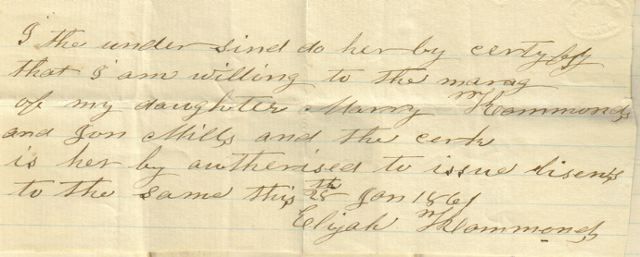 I the under sind do her by certyfy
that I am willing to the marag
of my daughter Marry Hammonds
and Jon Mills and the cerk
is her by autherised to issue lisens
to the same this 28th Jan 1861
Elijah Hammonds